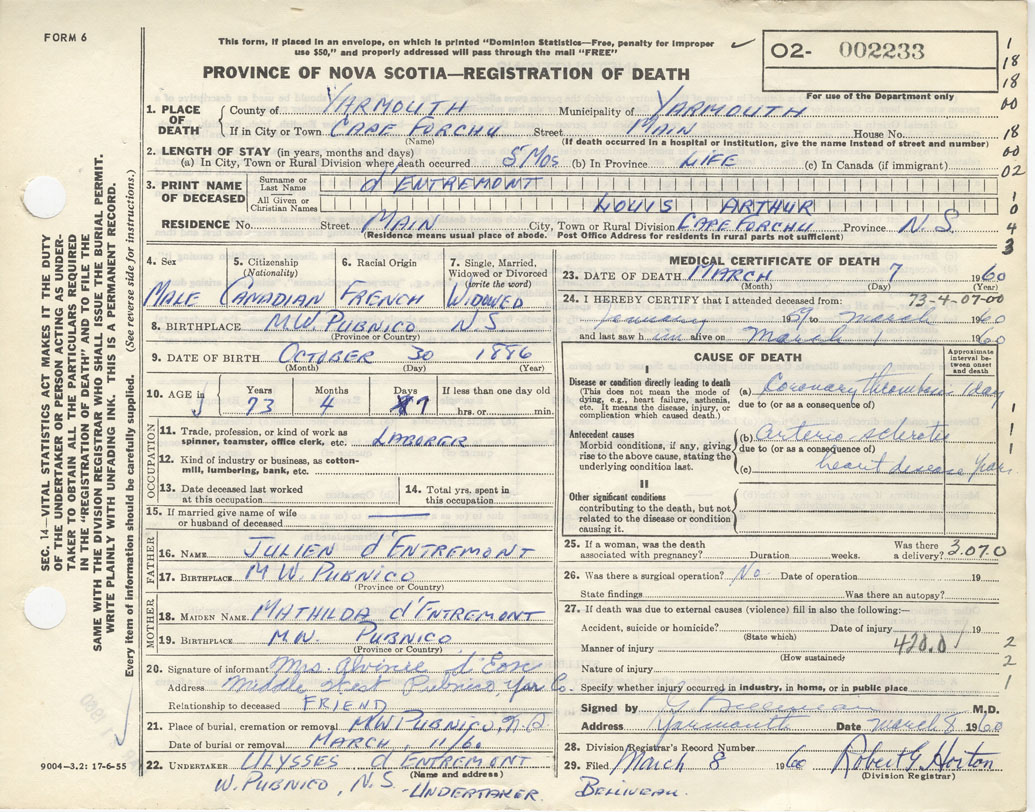 FORM 6
This form, if placed in an envelope, on which is printed "Dominion Statistics—Free, penalty for improper
use $50," and properly addressed will pass through the mail "FREE"
O2- 002233
PROVINCE OF NOVA SCOTIA—REGISTRATION OF DEATH
For use of the Department only
1. PLACE OF DEATH County of YARMOUTH Municipality of YARMOUTH
If in City or Town CAPE FORCHU Street MAIN House No.
(Name) (If death occurred in a hospital or institution, give the name instead of street and number)
2. LENGTH OF STAY (in years, months and days)
(a) In City, Town or Rural Division where death occurred 5 MOS (b) In Province LIFE (c) In Canada (if immigrant)
3. PRINT NAME OF DECEASED Surname or Last Name d'ENTREMONT
All Given or Christian Names LOUIS ARTHUR
RESIDENCE No. Street MAIN City, Town or Rural Division CAPE FORCHU Province N.S.
(Residence means usual place of abode. Post Office Address for residents in rural parts not sufficient)
1
18
18
00
18
00
02
1
0
4
3
4. Sex MALE
5. Citizenship (Nationality) CANADIAN
6. Racial Origin FRENCH
7. Single, Married, Widowed or Divorced (write the word) WIDOWED
8. BIRTHPLACE M.W. PUBNICO N.S
(Province or Country)
9. DATE OF BIRTH OCTOBER 30 1886
(Month) (Day) (Year)
10. AGE in Years 73 Months 4 Days 7 If less than one day old hrs. or min.
OCCUPATION
11. Trade, profession, or kind of work as
spinner, teamster, office clerk, etc. LABORER
12. Kind of industry or business, as cotton-
mill, lumbering, bank, etc.
13. Date deceased last worked
at this occupation
14. Total yrs. spent in
this occupation
15. If married give name of wife
or husband of deceased
FATHER
16. NAME JULIEN d'ENTREMONT
17. BIRTHPLACE M W. PUBNICO
(Province or Country)
MOTHER
18. MAIDEN NAME MATHILDA d'ENTREMONT
19. BIRTHPLACE M.W. PUBNICO
(Province or Country)
20. Signature of informant Mrs. d'Eon
Address Middle West Pubnico, Yar. Co.
Relationship to deceased FRIEND
21. Place of burial, cremation or removal M.W. PUBNICO, N.S.
Date of burial or removal MARCH, 11/60
22. UNDERTAKER ULYSSES d'ENTREMONT
(Name and address)
W. PUBNICO, N.S. - UNDERTAKER.
9004-3.2: 17-6-55
MEDICAL CERTIFICATE OF DEATH
23. DATE OF DEATH MARCH 7 1960
(Month) (Day) (Year)
73-4-07-00
24. I HEREBY CERTIFY that I attended deceased from:
January 1959 to March 1960
and last saw him alive on March 7 1960
CAUSE OF DEATH
Approximate interval between onset and death
I
Disease or condition directly leading to death
(This does not mean the mode of
dying, e.g., heart failure, asthenia,
etc. It means the disease, injury, or
complication which caused death.)
(a) Coronary thrombosis 1 day
due to (or as a consequence of)
Antecedent causes
Morbid conditions, if any, giving
rise to the above cause, stating the
underlying condition last.
(b) Arterio sclerotic
due to (or as a consequence of)
(c) heart disease years
II
Other significant conditions
contributing to the death, but not
related to the disease or condition
causing it.
1
1
1
25. If a woman, was the death
associated with pregnancy? Duration weeks. Was there a delivery? 3.07.0
26. Was there a surgical operation? No Date of operation 19
State findings Was there an autopsy?
27. If death was due to external causes (violence) fill in also the following:—
Accident, suicide or homicide? Date of injury 19
(State which)
Manner of injury 420.0
(How sustained)
Nature of injury
Specify whether injury occurred in industry, in home, or in public place
2
2
1
Signed by G Belliveau M.D.
Address Yarmouth Date March 8 1960
28. Division Registrar's Record Number
29. Filed March 8 1960 Robert G. Horton
(Division Registrar)
BELLIVEAU.
SEC. 14—VITAL STATISTICS ACT MAKES IT THE DUTY
OF THE UNDERTAKER OR PERSON ACTING AS UNDER-
TAKER TO OBTAIN ALL THE PARTICULARS REQUIRED
IN THE "REGISTRATION OF DEATH" AND TO FILE THE
SAME WITH THE DIVISION REGISTRAR WHO SHALL ISSUE THE BURIAL PERMIT.
WRITE PLAINLY WITH UNFADING INK. THIS IS A PERMANENT RECORD.
Every item of information should be carefully supplied. (See reverse side for instructions.)